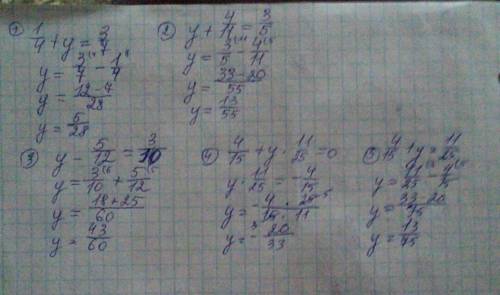 ① 1/4 + y = 3/7
y = 3/7 - 1/4
y = 12-7/28
y = 5/28
② y + 4/11 = 3/5
y = 3/5 - 4/11
y = 33-20/55
y = 13/55
③ y - 5/12 = 3/10
y = 3/10 + 5/12
y = 18+25/60
y = 43/60
④ 4/15 + y · 11/25 = 0
y · 11/25 = - 4/15
y = - 4 · 25/15 · 11
y = - 20/33
⑤ 4/15 + y = 11/25
y = 11/25 - 4/15
y = 33-20/75
y = 13/75